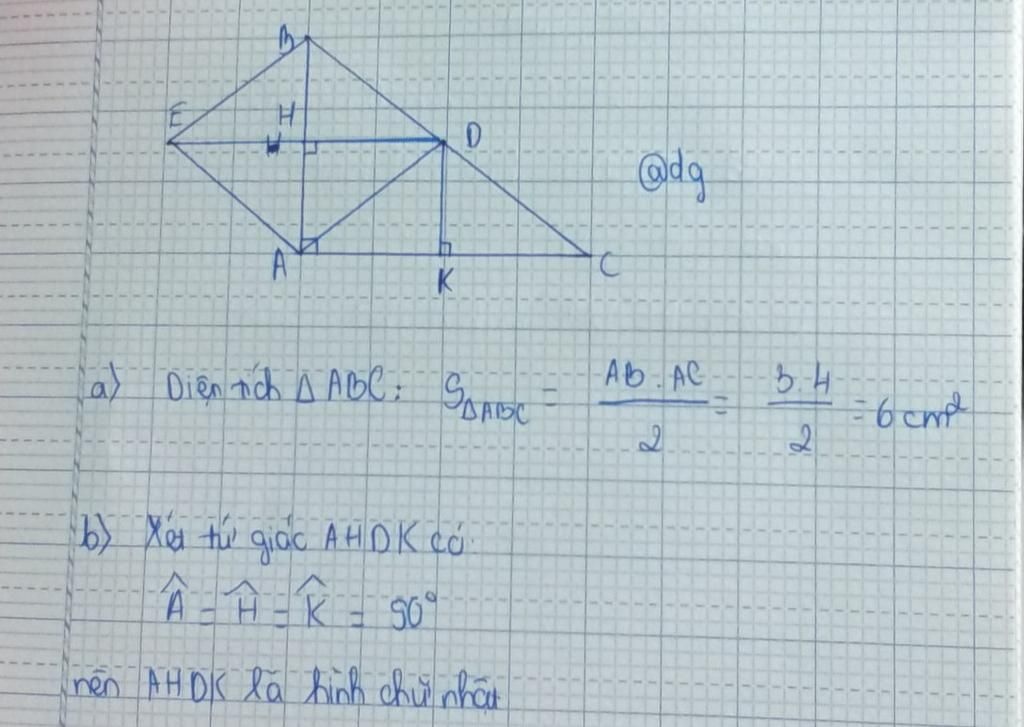 B
E H D
@dg
A K C
a) Diện tích ΔABC: S_ΔABC = AB.AC / 2 = 3.4 / 2 = 6 cm²
b) Xét tứ giác AHDK có:
Â = Ĥ = K̂ = 90°
nên AHDK là hình chữ nhật